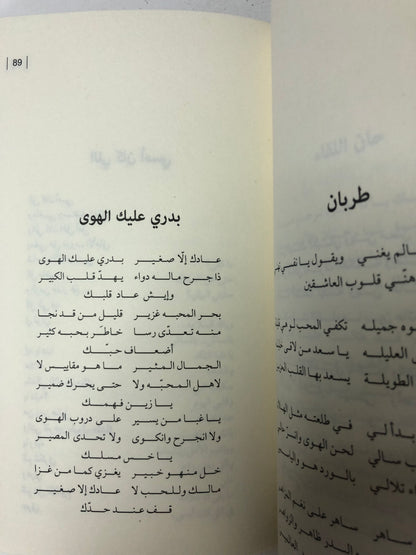 | 89 |
بدري عليك الهوى
عادك إلا صغير بدري عليك الهوى
ذا جرح ماله دواء يهدّ قلب الكبير
وإيش عاد قلبك
بحر المحبه غزير قليل من قد نجا
منه تعدّى رسا خاطر بحبه كثير
أضعاف حبّك
الجمال المثير ما هو مقاييس لا
لاهل المحبّه ولا حتى يحرك ضمير
يا زين فهمك
يا غبا من يسير على دروب الهوى
ولا انجرح وانكوى ولا تحدى المصير
يا خس مسلك
خل منهو خبير يغزي كما من غزا
مالك وللحب لا عادك إلا صغير
قف عند حدّك
طربان
الم يغني ويقول يا نفسي
هنّي قلوب العاشقين
وه جميله تكفي المحب لو في
العليله يا سعد من لاقى
الطويلة يسعد بها القلب
بدا لي في طلعته مثل
سالي لحن الهوى
تلالي بالورد هو
ساهر ساهر على نغم
البدر ظاهر